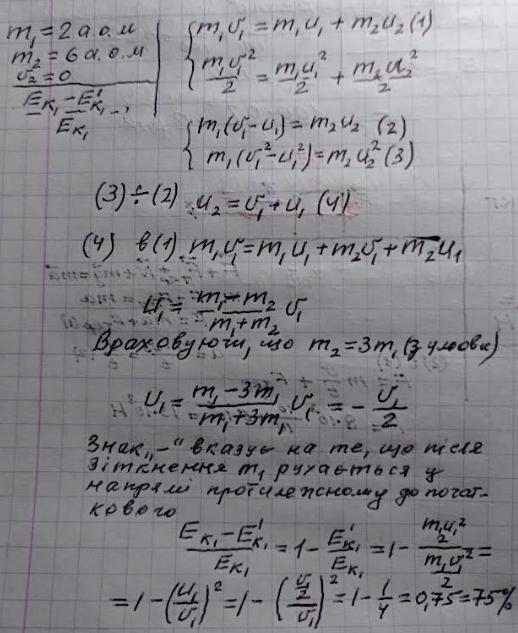 m₁ = 2 а.о.м
m₂ = 6 а.о.м
v₂ = 0
(Eк₁ - E'к₁)/Eк₁ - ?
{ m₁v₁ = m₁u₁ + m₂u₂ (1)
m₁v₁²/2 = m₁u₁²/2 + m₂u₂²/2
{ m₁(v₁-u₁) = m₂u₂ (2)
m₁(v₁²-u₁²) = m₂u₂² (3)
(3) ÷ (2) u₂ = v₁ + u₁ (4)
(4) в (1) m₁v₁ = m₁u₁ + m₂v₁ + m₂u₁
u₁ = (m₁ - m₂)/(m₁ + m₂) v₁
Враховуючи, що m₂ = 3m₁ (з умови)
u₁ = (m₁ - 3m₁)/(m₁ + 3m₁) v₁ = - v₁/2
Знак „-“ вказує на те, що після
зіткнення m₁ рухається у
напрямі протилежному до почат-
кового
(Eк₁ - E'к₁)/Eк₁ = 1 - E'к₁/Eк₁ = 1 - (m₁u₁²/2)/(m₁v₁²/2) =
= 1 - (u₁/v₁)² = 1 - ((v₁/2)/v₁)² = 1 - 1/4 = 0,75 = 75%